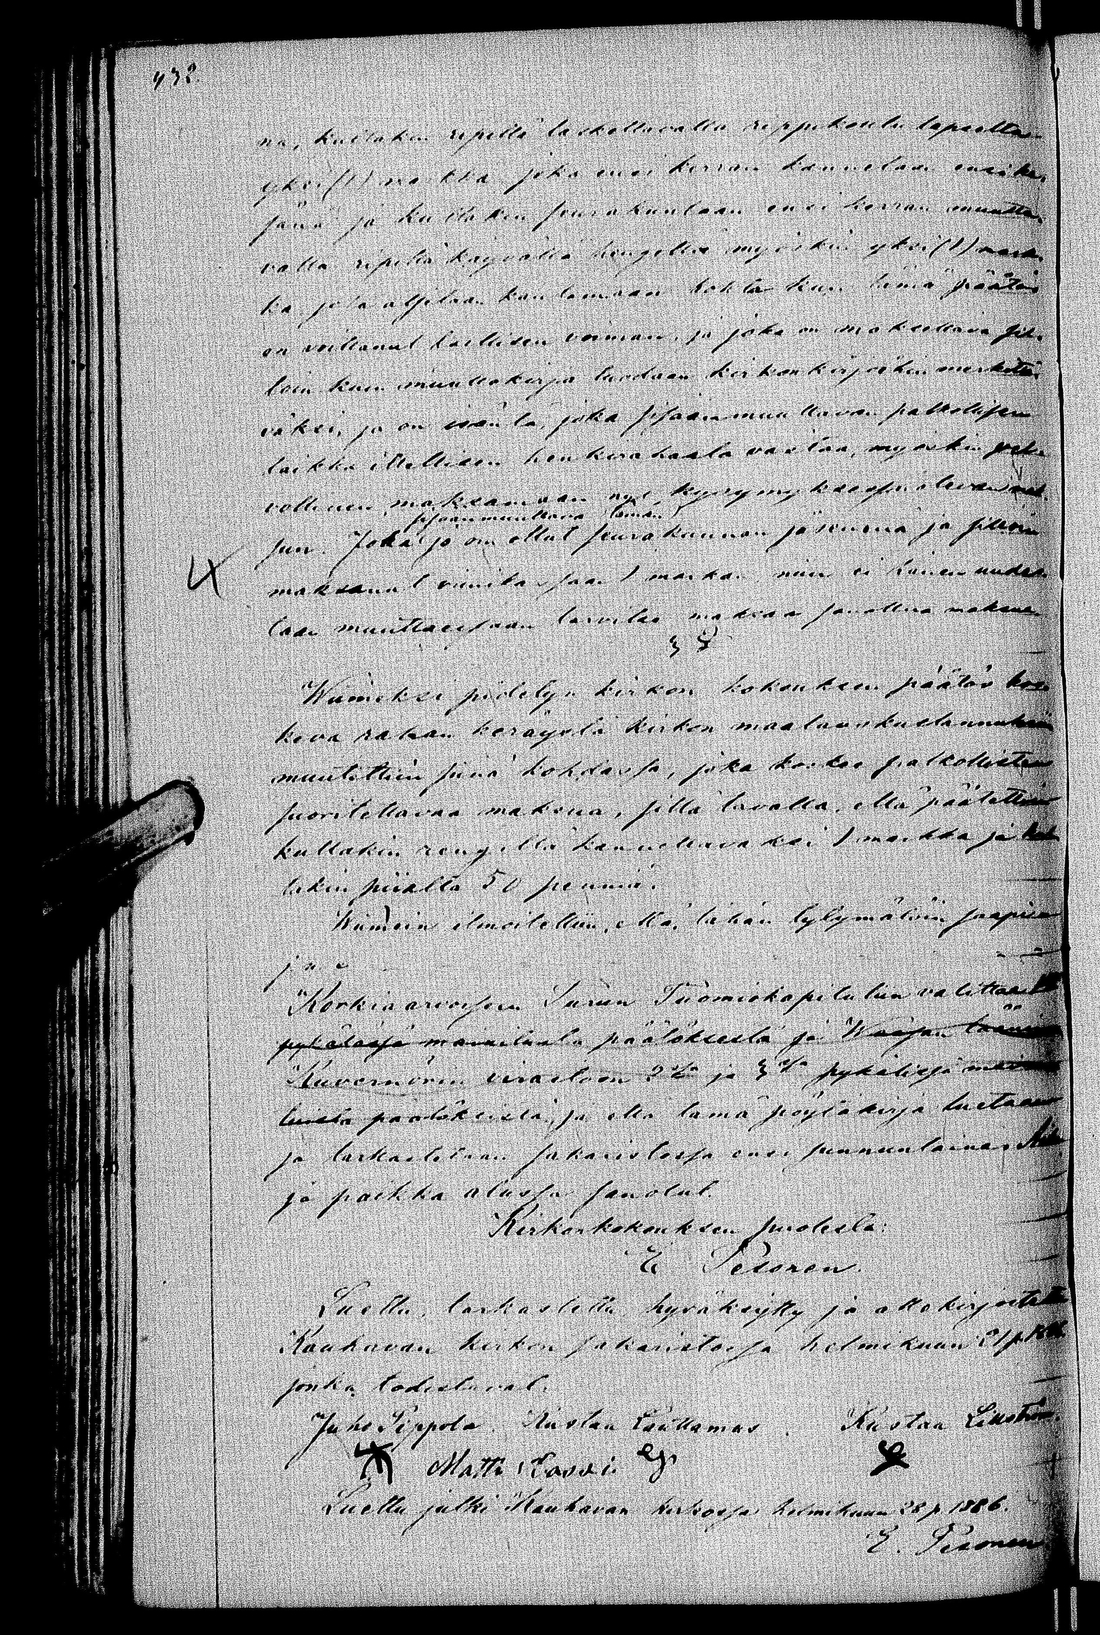 432.
na, kultakin ripille laskettavalta rippikoulu lapselta
yksi (1) markka, joka ensi kerran kannetaan ensi ke-
sänä ja kultakin seurakuntaan ensi kerran muutta-
valta ripillä käyvältä hengeltä myöskin yksi (1) mark-
ka jota aljetaan kantamaan kohta kun tämä päätös
on voittanut laillisen voiman, ja joka on maksettava sil-
loin kuin muuttokirja tuodaan kirkonkirjoihin merkittä-
väksi, ja on isäntä, joka sisään muuttavan palkollisen
taikka itellisen henkirahasta vastaa, myöskin vel-
vollinen maksamaan nyt kysymyksessä olevan mak-
sisään muuttava tänne
sun. Joka jo on ollut seurakunnan jäsenenä ja
maksanut 1 markan niin ei hänen uudes-
taan muuttaissaan tarvitse maksaa sanottua maksua
3 §
Wiimeksi pidetyn kirkon kokouksen päätös kos-
keva rahan keräystä kirkon maalauskustannuksiin
muutettiin siinä kohdassa, joka koskee palkollisten
suoritettavaa maksua, sillä tavalla, että päätettiin
kultakin rengiltä kannettavaksi 1 markka ja kul-
takin piialta 50 penniä.
Wiimein ilmoitettiin, että tähän tytymätöin saapi
j. n. e
Korkiaarvoisen Turun Tuomiokapituliin valittaa
pykälässä mainitusta päätöksestä ja Waasan läänin
Kuvernörin virastoon 2ssa ja 3ssa pykälissä maini-
tuista päätöksistä, ja että tämä pöytäkirja luetaan
ja tarkastetaan sakaristossa ensi sunnuntaina
ja paikka alussa sanotut.
Kirkonkokouksen puolesta:
E Pesonen.
Luettu, tarkastettu hyväksytty ja allekirjoitettu
Kauhavan kirkon sakaristossa helmikuun 21 p. 1886.
jonka todistavat.
Juho Pippola Kustaa Luttamus. Kustaa Lillström.
Matti Kossi.
Luettu julki Kauhavan kirkossa helmikuun 28 p. 1886.
E. Pesonen